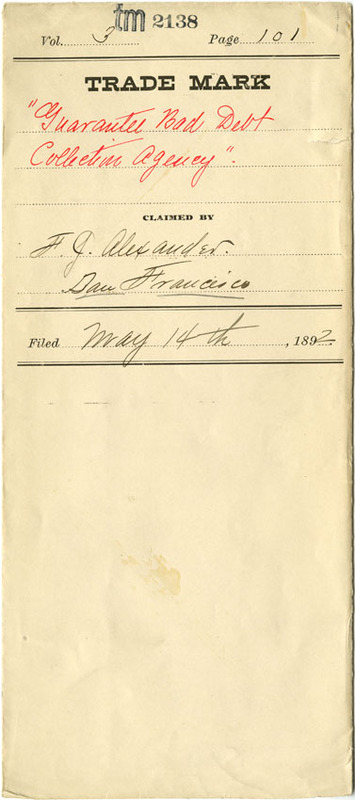 tm 2138
Vol. 3 Page 101
TRADE MARK
"Guarantee Bad Debt
Collection Agency".
CLAIMED BY
F. J. Alexander.
San Francisco
Filed May 14th, 1892.